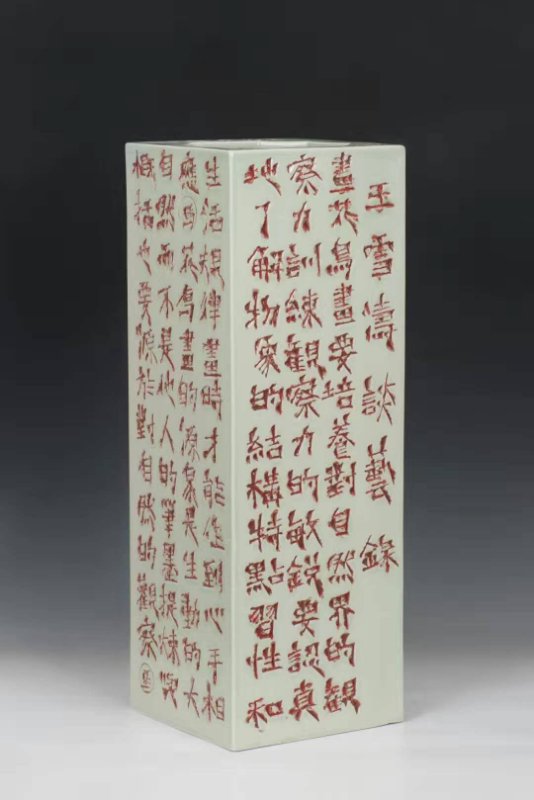 王雪濤談藝錄
畫花鳥畫要培養對自然界的觀
察力訓練觀察力的敏銳要認真
地了解物象的結構特點習性和
生活規律畫時才能達到心手相
應花鳥畫的源泉是生動的大
自然而不是他人的筆墨提煉與
概括也要源於對自然的觀察